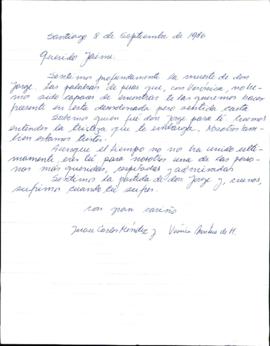 Santiago 8 de Septiembre de 1986
Querido Jaime:
Sentimos profundamente la muerte de don
Jorge. Las palabras de pesar que, con Verónica, no he-
mos sido capaces de encontrar te las queremos hacer
presente en esta desordenada pero sentida carta
Sabemos quien fué don Jorge para ti, creemos
entender la tristeza que te embarga, nosotros tam-
bien estamos tristes.
Aunque el tiempo no nos ha unido ulti-
mamente, eres tú para nosotros una de las perso-
nas más queridas, respetadas y admiradas
Sentimos la partida de don Jorge y, creenos,
sufrimos cuando tú sufres.
con gran cariño
Juan Carlos Méndez y